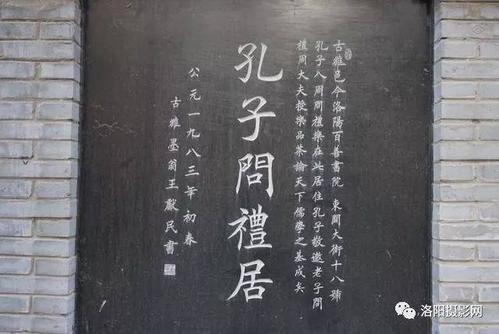 古雒邑今洛陽百善書院 東關大街十八號
孔子入周問禮樂在此居住孔子數邀老子問
禮周大夫授樂品茶論天下儒學之基成矣
孔子問禮居
公元一九八三年初春
古雒墨翁王獻民書
洛阳摄影网